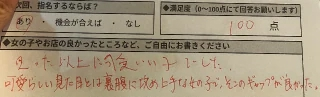 次回、指名するならば？ ◆満足度（0～100点にて回答お願いします）
あり ・ 機会が合えば ・ なし 100 点
◆女の子やお店の良かったところなど、ご自由にお書きください
思った以上に可愛いい子でした。
可愛らしい見た目とは裏腹に攻め上手な女の子で、そこのギャップが良かった。